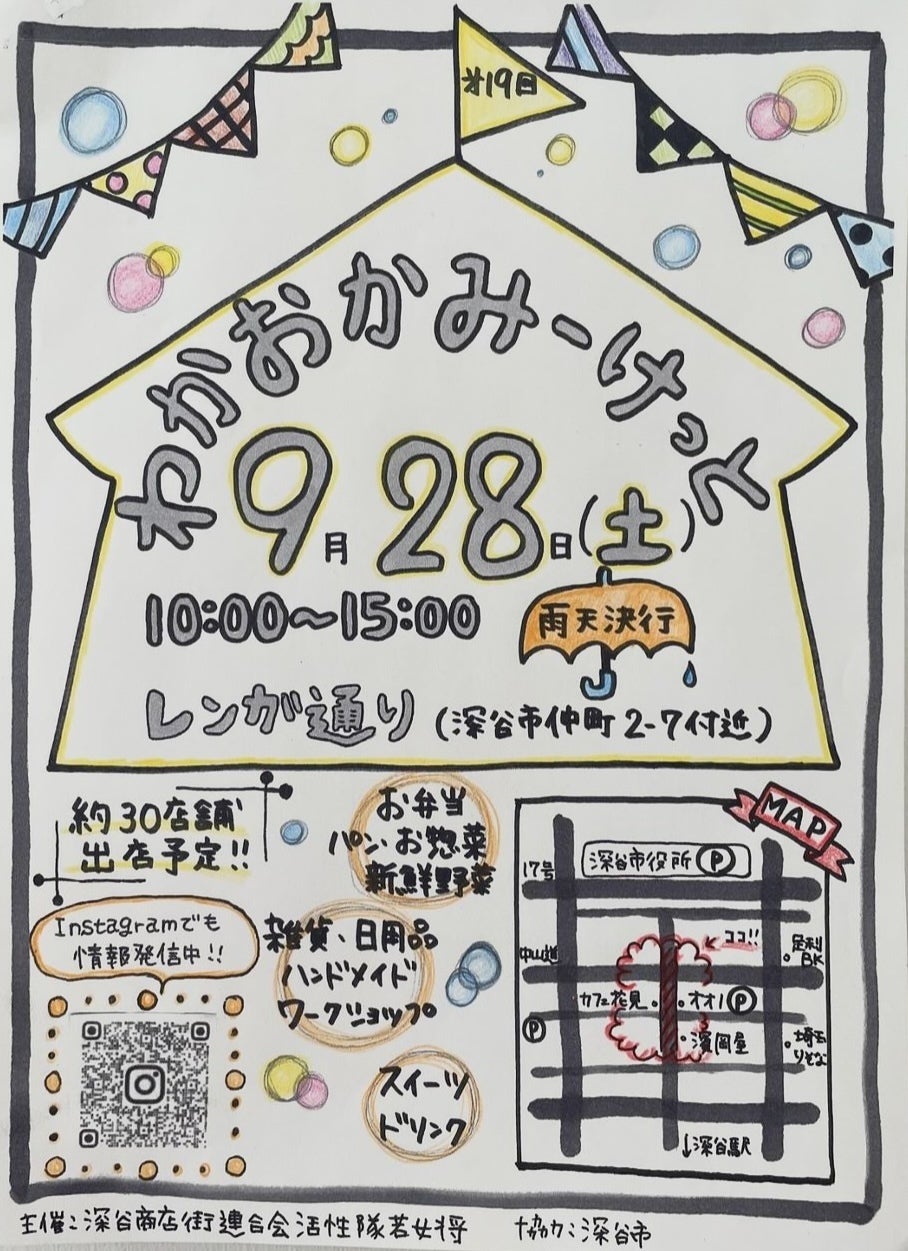 㐧19回
わかおかみーけっと
9月28日(土)
10:00〜15:00
雨天決行
レンガ通り(深谷市仲町2-7付近)
約30店舗
出店予定!!
Instagramでも
情報発信中!!
お弁当
パン、お惣菜
新鮮野菜
雑貨、日用品
ハンドメイド
ワークショップ
スイーツ
ドリンク
MAP
17号
深谷市役所 P
中山道
ココ!!
足利
BK
カフェ花見
オオノ P
P
濱岡屋
埼玉
りそな
↓深谷駅
主催:深谷商店街連合会活性隊若女将
協力:深谷市